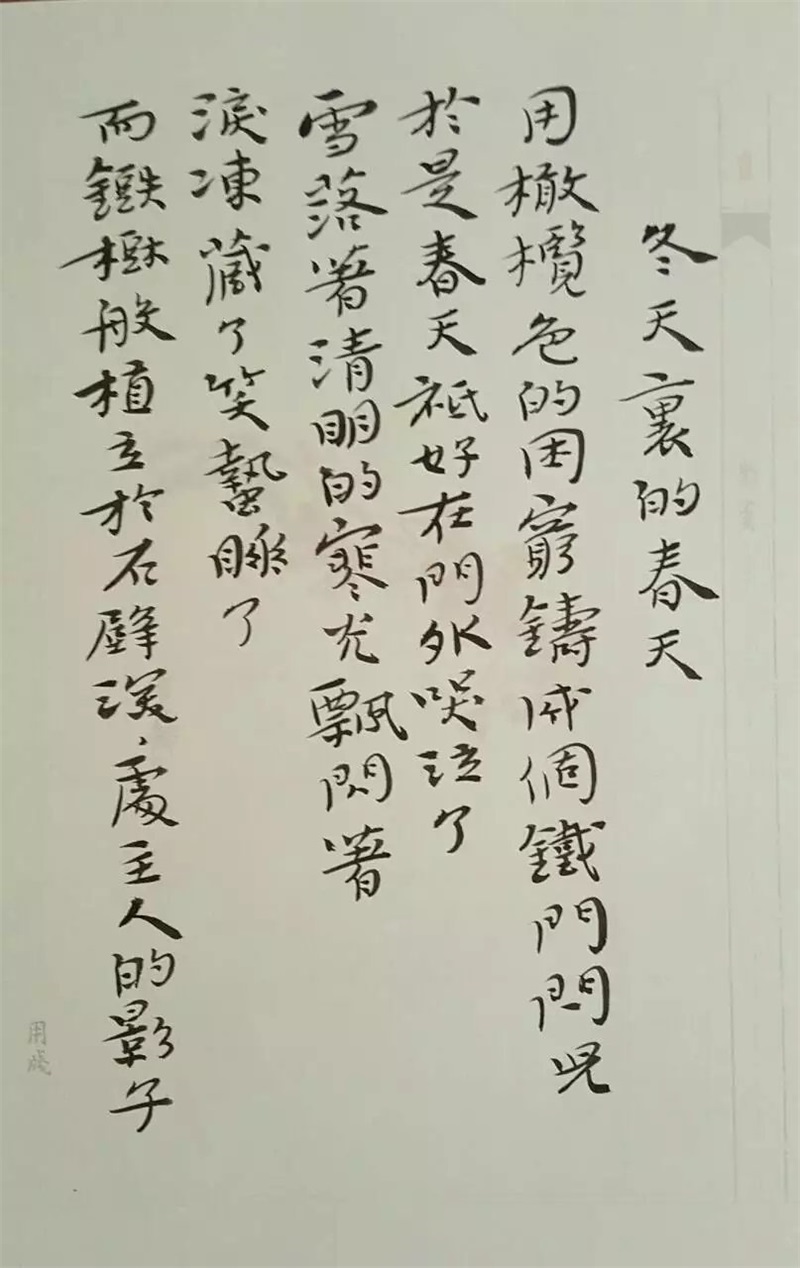 冬天裏的春天
用橄欖色的困窮鑄成個鐵門閂兒
於是春天祇好在門外哭泣了
雪落著清明的寒光飄閃著
淚凍藏了笑蟄睡了
而鐵樹般植立於石壁深、處主人的影子
用箋